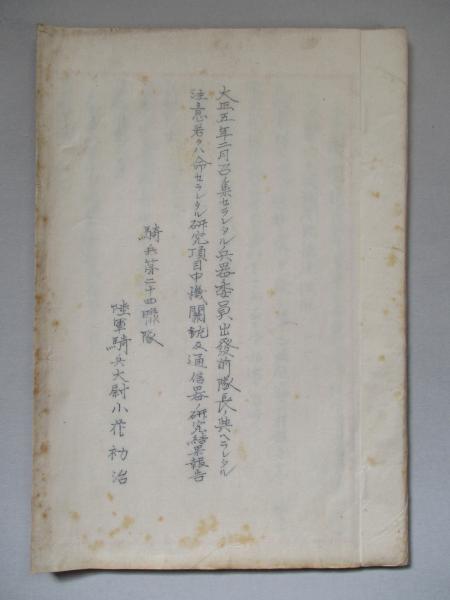 大正五年二月召集セラレタル兵器委員出發前隊長ノ與ヘラレタル
注意若クハ命セラレタル研究項目中機關銃及通信器ノ研究結果報告
騎兵第二十四聯隊
陸軍騎兵大尉小花初治